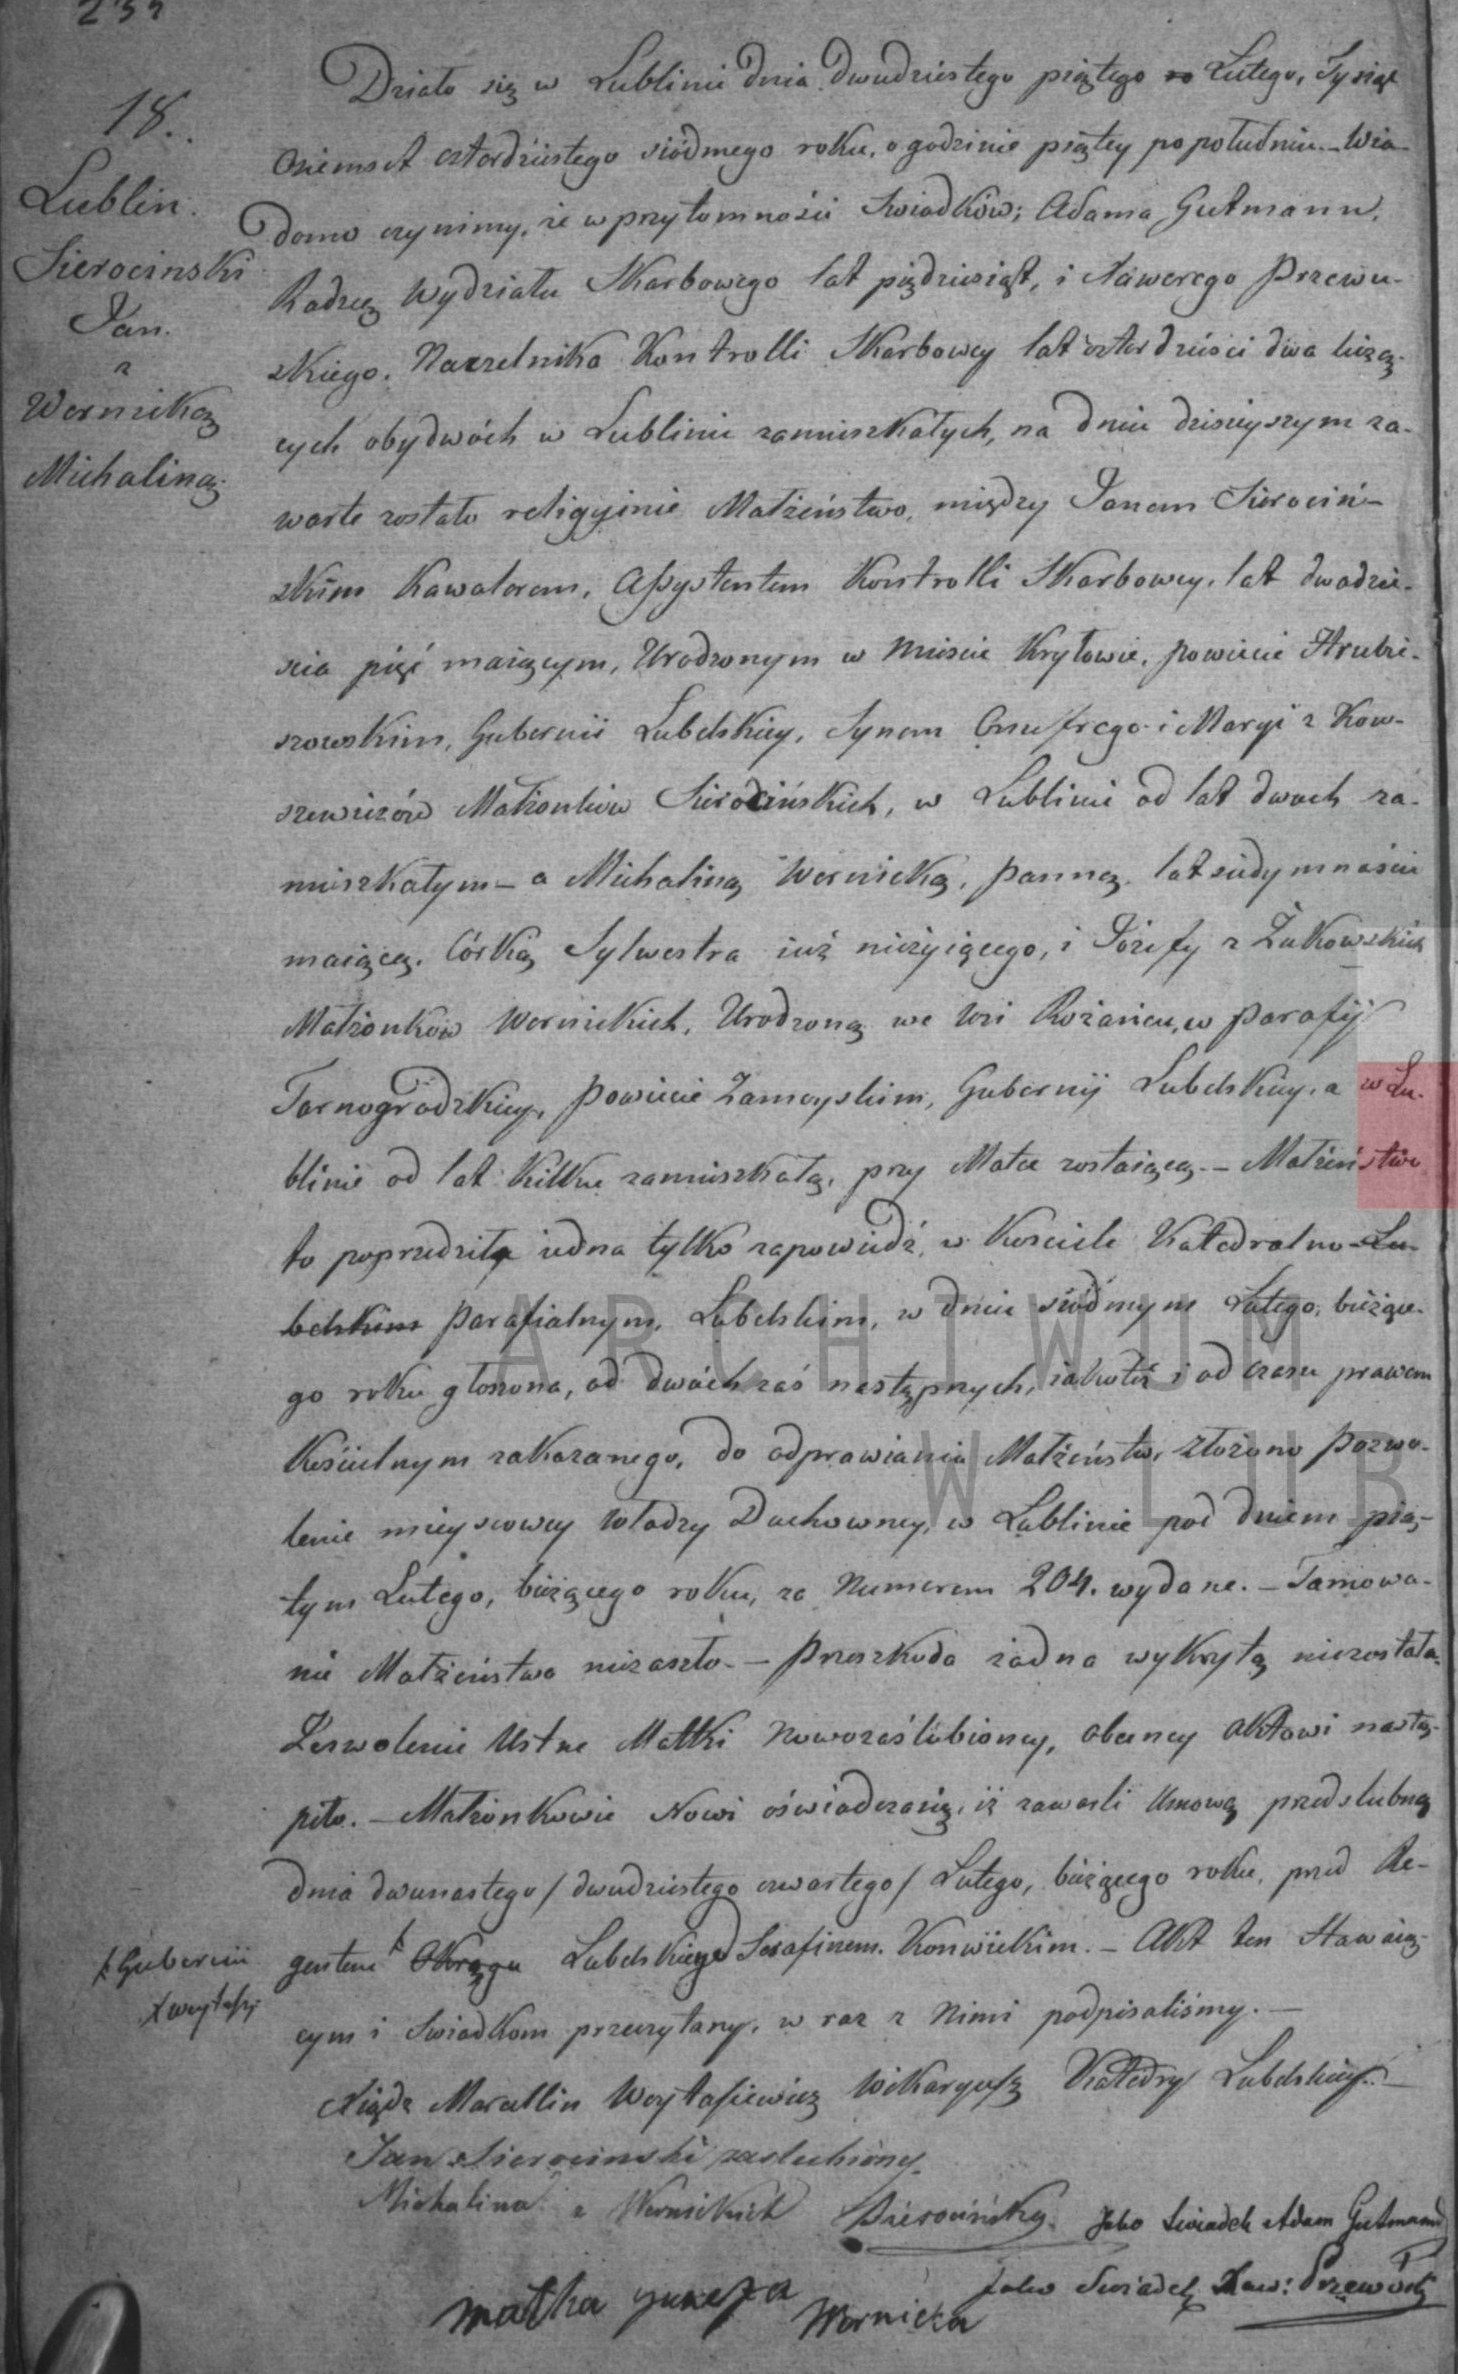 18.
Lublin.
Sierocinski
Jan.
z
Wernicką
Michaliną.
Działo się w Lublinie dnia dwudziestego piątego Lutego, Tysiąc
osiemset czterdziestego siódmego roku, o godzinie piątey popołudniu. – Wia-
domo czynimy, że w przytomności Swiadków; Adama Gutmann,
Radzcy Wydziału Skarbowego lat pięдziesiąt, i Xawerego Przewu-
skiego. Naczelnika Kontrolli Skarbowey lat czterdzieści dwa liczą-
cych obydwóch w Lublinie zamieszkałych, na dniu dzisieyszym za-
warte zostało religijnie Małżeństwo, między Janem Sierociń-
skim Kawalerem, Assystentem Kontrolli Skarbowey, lat dwadzie-
scia pięć maiącym, Urodzonym w Mieście Kryłowie, powiecie Hrubie-
szowskim, Gubernii Lubelskiey, Synem Onufrego i Maryi z Kow-
szewiczów Małżonków Sierocińskich, w Lublinie od lat dwóch za-
mieszkałym – a Michaliną Wernicką, panną, lat siedymnaście
maiącą, Córką Sylwestra iuż nieżyiącego, i Józefy z Żukowskich
Małżonków Wernickich, Urodzoną we Wsi Rożańcu, w parafij
Tarnogrodzkiey, powiecie Zamoyskim, Gubernij Lubelskiey, a w Lu-
blinie od lat kilku zamieszkałą, przy Matce zostaiącą. – Małżeństwo
to poprzedziła iedna tylko zapowiedź, w Kościele Katedralno-Lu-
belskim parafialnym, Lubelskim, w dniu siódmym Lutego, bieżące-
go roku głoszona, od dwóch zaś następnych, iakoteż i od czasu prawem
Kościelnym zakazanego, do odprawiania Małżeństw, złożono pozwo-
lenie mieyscowey Władzy Duchowney, w Lublinie pod dniem pią-
tym Lutego, bieżącego roku, za Numerem 204. wydane. – Tamowa-
nie Małżeństwa niezaszło. – Przeszkoda żadna wykrytą niezostała.
Zezwolenie Ustne Matki Nowozaślubioney, obecney Aktowi nastą-
piło. – Małżonkowie Nowi oświadczaią, iż zawarli Umowę przedslubną
dnia dwunastego / dwudziestego czwartego / Lutego, bieżącego roku, przed Re-
gentem Okręgu Lubelskiego Serafinem Konwickim. – Akt ten Stawaią-
Gubernii
cym i Swiadkom przeczytany, w raz z Nimi podpisaliśmy. –
Xiądz Marcellin Woytasiewicz Wikaryusz Katedry Lubelskiey. –
Jan Sierocinski zaslubiony
Michalina z Wernickich Sierocińska. Jako Swiadek Adam Gutmann
Jako Swiadek Xaw: Przewóski
Matka Juzefa Wernicka
ARCHIWUM
W LUB